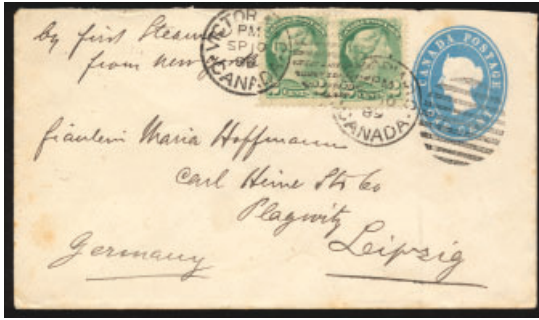 by first Steamer
from new
VICTOR
PM
SP 10
89
CANADA
PM
10
89
CANADA
CANADA POSTAGE
Fräulein Maria Hoffmann
Carl Heine Str 60
Plagwitz
Leipzig
Germany